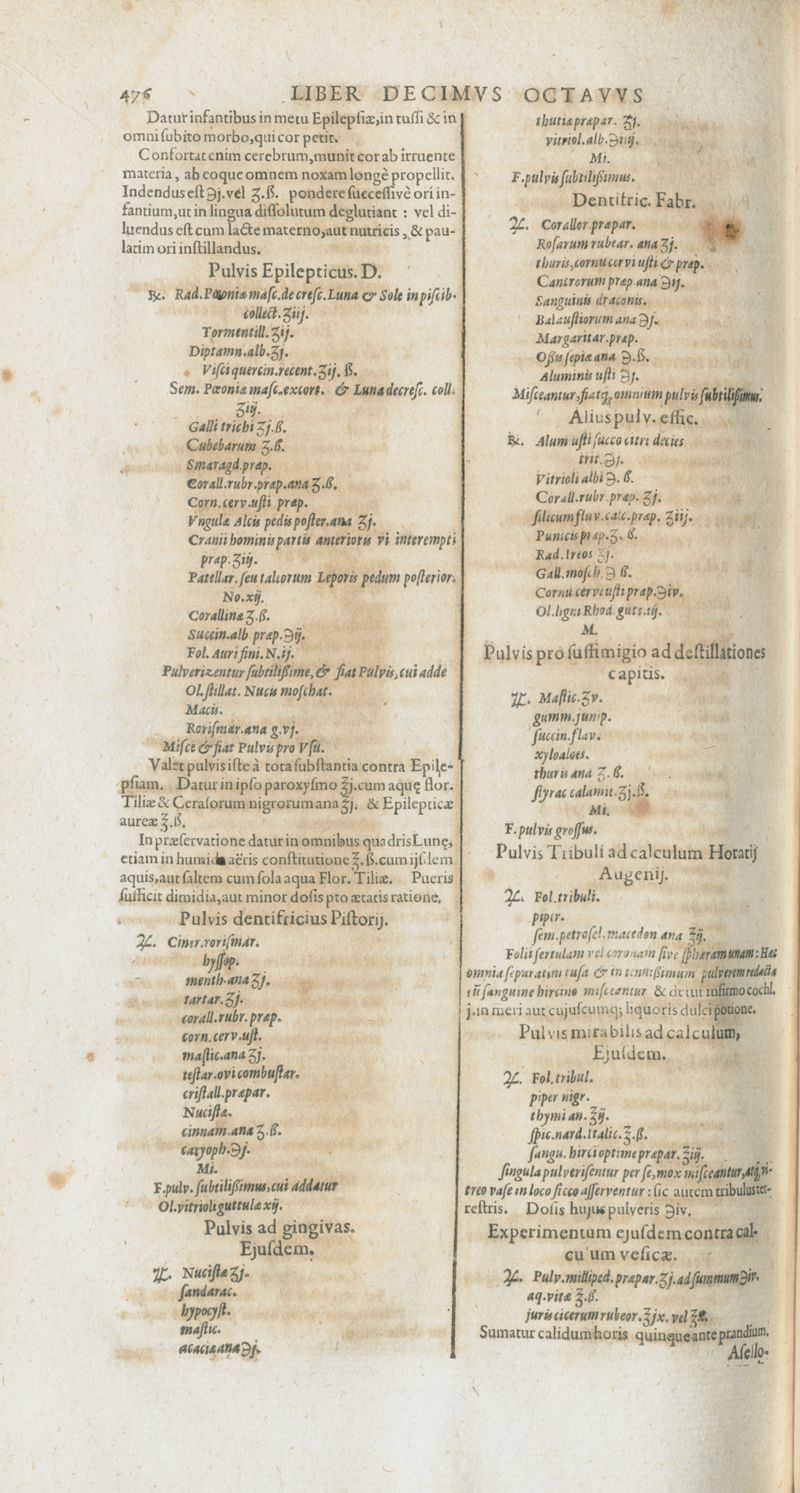 476 LIBER DECIMVS OCTAVVS
Datur infantibus in metu Epilepſiæ, in tuſſi & in
omni ſubito morbo, qui cor petit.
Confortat enim cerebrum, munit cor ab irruente
materia, ab eoque omnem noxam longè propellit.
Indendus eſt ℈j. vel ʒ.ß. pondere ſucceſſivè ori in-
fantium, ut in lingua diſſolutum deglutiant : vel di-
luendus eſt cum lacte materno, aut nutricis, & pau-
latim ori inſtillandus.
Pulvis Epilepticus. D.
℞. Rad. Pœoniæ maſc. de creſc. Luna & Sole in piſcib.
collect. ʒiij.
Tormentill. ʒij.
Diptamn. alb. ʒj.
Viſci quercin. recent. ʒij. ß.
Sem. Pœoniæ maſc. excort. & Luna decreſc. coll.
ʒiij.
Galli trichi ʒj.ß.
Cubebarum ʒ.ß.
Smaragd. præp.
Corall. rubr. præp. ana ʒ.ß.
Corn. cerv. uſti præp.
Vngulæ Alcis pedis poſter. ana ʒj.
Cranii hominis partis anterioris vi interempti
præp. ʒiij.
Patellar. ſeu taliorum Leporis pedum poſterior.
No. xij.
Corallinæ ʒ.ß.
Succin. alb præp. ℈ij.
Fol. Auri fini. N. ij.
Pulverizentur ſubtilißime, & fiat Pulvis, cui adde
Ol. ſtillat. Nucis moſchat.
Macis.
Roriſmar. ana g. vj.
Miſce & fiat Pulvis pro Vſu.
Valet pulvis iſte à tota ſubſtantia contra Epile-
pſiam. Datur in ipſo paroxyſmo ℥j. cum aquę flor.
Tiliæ & Ceraſorum nigrorum ana ℥j. & Epilepticæ
aureæ ℥.ß.
In præſervatione datur in omnibus quadris Lunę,
etiam in humida aëris conſtitutione ʒ.ß. cum ijſdem
aquis, aut ſaltem cum ſola aqua Flor. Tiliæ. Pueris
ſufficit dimidia, aut minor doſis pto ætatis ratione.
Pulvis dentifricius Piſtorij.
♃. Ciner. roriſmar.
hyſſop.
menth. ana ʒj.
tartar. ʒj.
corall. rubr. præp.
corn. cerv. uſt.
maſtic. ana ʒj.
teſtar. ovi combuſtar.
criſtall. præpar.
Nuciſtæ.
cinnam. ana ʒ.ß.
caryoph. ℈j.
Mi.
F. pulv. ſubtilißimus, cui addatur
Ol. vitrioli guttulæ xij.
Pulvis ad gingivas.
Ejuſdem.
♃. Nuciſtæ ʒj.
ſandarac.
hypocyſt.
maſtic.
acaciæ ana ℈j.
thutiæ præpar. ʒj.
vitriol. alb. ℈iiij.
Mi.
F. pulvis ſubtilißimus.
Dentifric. Fabr.
♃. Corallor. præpar.
Roſarum rubear. ana ʒj.
thuris, cornu cervi uſti & præp.
Cancrorum præp ana ℈ij.
Sanguinis draconis.
Balauſtiorum ana ℈j.
Margaritar. præp.
Oßis ſepiæ ana ℈.ß.
Aluminis uſti ℈j.
Miſceantur, fiatq; omnium pulvis ſubtilißimus.
Alius pulv. effic.
℞. Alum uſti ſucco citri decies
trit. ℈j.
Vitrioli albi ℈. ß.
Corall. rubr. præp. ʒj.
ſilicum fluv. calc. præp. ʒiij.
Pumicis præp. ʒ. ß.
Rad. Ireos ʒj.
Gall. moſch. ℈ ß.
Cornu cervi uſti præp. ℈iv.
Ol. ligni Rhod. gutt. iij.
M.
Pulvis pro ſuffimigio ad deſtillationes
capitis.
♃. Maſtic. ʒv.
gumm. junip.
ſuccin. flav.
xyloaloes.
thuris ana ʒ. ß.
ſtyrac calamit. ʒj.ß.
Mi.
F. pulvis groſſus.
Pulvis Tribuli ad calculum Horatij
Augenij.
♃. Fol. tribuli.
piper.
ſem. petroſel. macedon ana ℥ij.
Folii ſertulam vel coronam ſive ſphæram unam: Hæc
omnia ſeparatim tuſa & in tenuißimum pulverem redacta
cū ſanguine hircino miſceantur & detur infirmo cochl.
j. in meri aut cujuſcumq; liquoris dulci potione.
Pulvis mirabilis ad calculum,
Ejuſdem.
♃. Fol. tribul.
piper nigr.
thymi an. ℥ij.
ſpic. nard. Italic. ℥.ß.
ſangu. hirci optime præpar. ℥iij.
ſingula pulveriſentur per ſe, mox miſceantur, atq; vi-
treo vaſe in loco ſicco aſſerventur : ſic autem tribulus ter-
reſtris. Doſis hujus pulveris ℈iv.
Experimentum ejuſdem contra cal-
cu um veſicæ.
♃. Pulv. milliped. præpar. ʒj. ad ſummum ℈iv.
aq. vitæ ℥.ß.
juris cicerum rubeor. ℥jx. vel
Sumatur calidum horis quinque ante prandium.
Aſello-